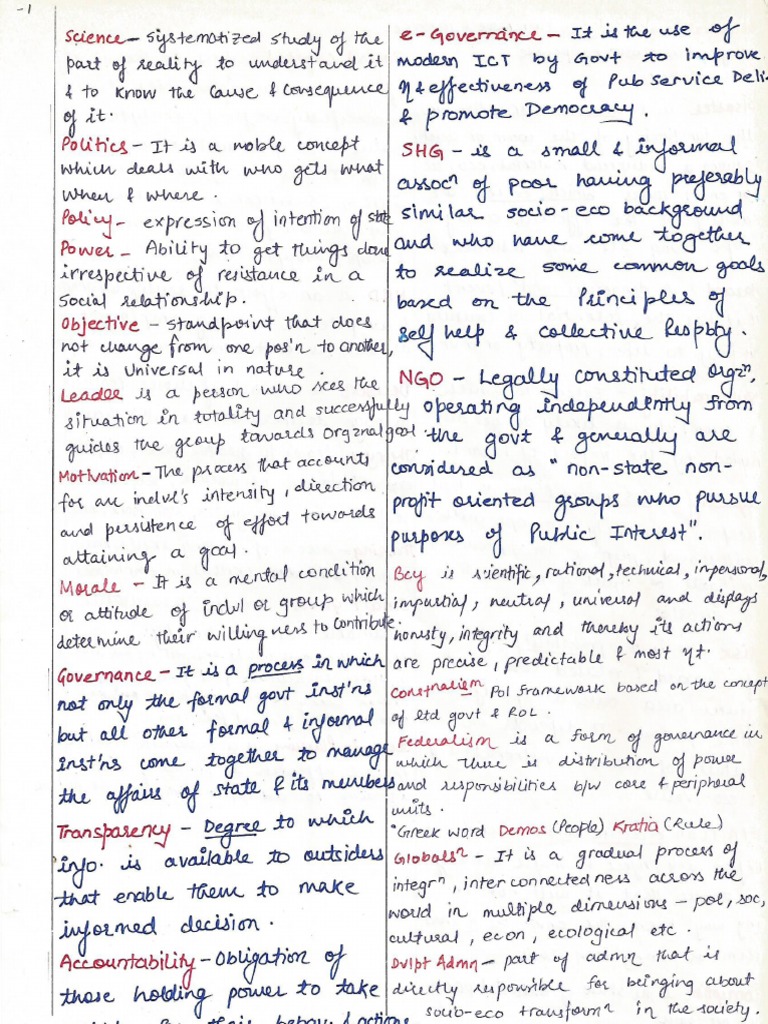 -1
Science - Systematized study of the
part of reality to understand it
& to know the cause & consequence
of it.
Politics - It is a noble concept
which deals with who gets what
when & where.
Policy - expression of intention of state
Power - Ability to get things done
irrespective of resistance in a
social relationship.
Objective - standpoint that does
not change from one pos'n to another,
it is Universal in nature.
Leader is a person who sees the
situation in totality and successfully
guides the group towards Orgznal goal.
Motivation - The process that accounts
for an indvl's intensity, direction
and persistence of effort towards
attaining a goal.
Morale - It is a mental condition
or attitude of indvl or group which
determine their willingness to contribute.
Governance - It is a process in which
not only the formal govt inst'ns
but all other formal & informal
inst'ns come together to manage
the affairs of state & its members
Transparency - Degree to which
info. is available to outsiders
that enable them to make
informed decision.
Accountability - Obligation of
those holding power to take
their behav & actions
e-Governance - It is the use of
modern ICT by Govt to improve
η & effectiveness of Pub Service Deli
& promote Democracy.
SHG - is a small & informal
assocⁿ of poor having preferably
similar socio-eco background
and who have come together
to realize some common goals
based on the Principles of
self help & collective Respbty.
NGO - Legally constituted Orgzⁿ,
operating independently from
the govt & generally are
considered as "non-state non-
profit oriented groups who pursue
purposes of Public Interest".
Bcy is scientific, rational, technical, impersonal,
impartial, neutral, universal and displays
honesty, integrity and thereby its actions
are precise, predictable & most ηt.
Constnalism Pol framework based on the concept
of ltd govt & ROL.
Federalism is a form of governance in
which there is distribution of power
and responsibilities b/w core & peripheral
units.
"Greek word Demos (People) Kratia (Rule)
Globalsⁿ - It is a gradual process of
integrⁿ, inter connectedness across the
world in multiple dimensions - pol, soc,
cultural, econ, ecological etc.
Dvlpt Admn - part of admn that is
directly responsible for bringing about
socio-eco transformⁿ in the society.